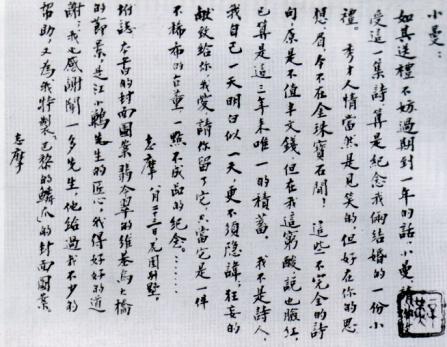 小曼:
如其送禮不妨過期到一年的話,小曼,請你收
受這一集詩,算是紀念我倆結婚的一份小
禮。秀才人情當然是見笑的,但好在你的思
想,眉,本不在金珠寶石間!這些不完全的詩
句,原是不值半文錢,但在我這窮酸,說也臉紅,
已算是這三年來唯一的積蓄。我不是詩人,
我自己一天明白似一天,更不須隱諱,狂妄的
獻致給你,我愛,請你留了它,只當它是一件
不稀希的古董,一點不成品的紀念。……
志摩 八月二十三日花園別墅。
附誌:本書的封面圖案翡冷翠的維基烏大橋
的節景,是江小鶼先生的匠心,我得好好的道
謝,我也感謝聞一多先生,他給過我不少的
幫助,又為我特製「巴黎的鱗爪」的封面圖案。
志摩